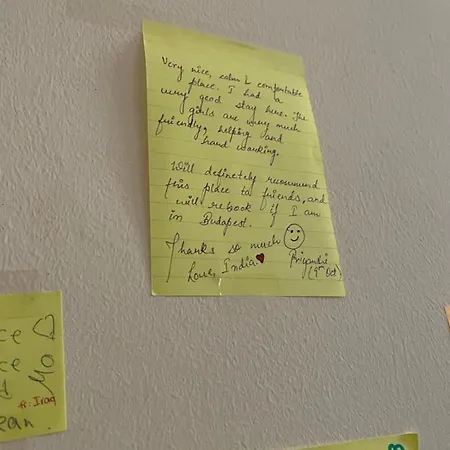 Very nice, calm & comfortable
place. I had a
very good stay here. The
girls are very much
friendly, helping and
hard working.
Will definetely recommend
this place to friends, and
will rebook if I am
in Budapest.
Thanks so much
Love, India.
Priyanshi
(9th Oct)
ce
ce
d Yo
fr. Iraq
ean.